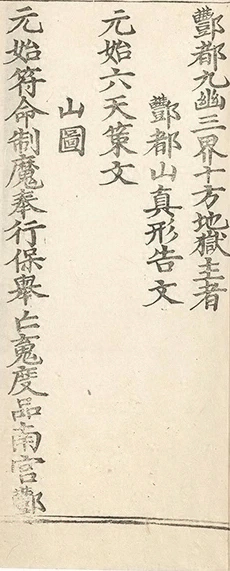 酆都九幽三界十方地獄主者
酆都山真形告文
元始六天策文
山圖
元始符命制魔奉行保舉亡䰟度品南宮酆